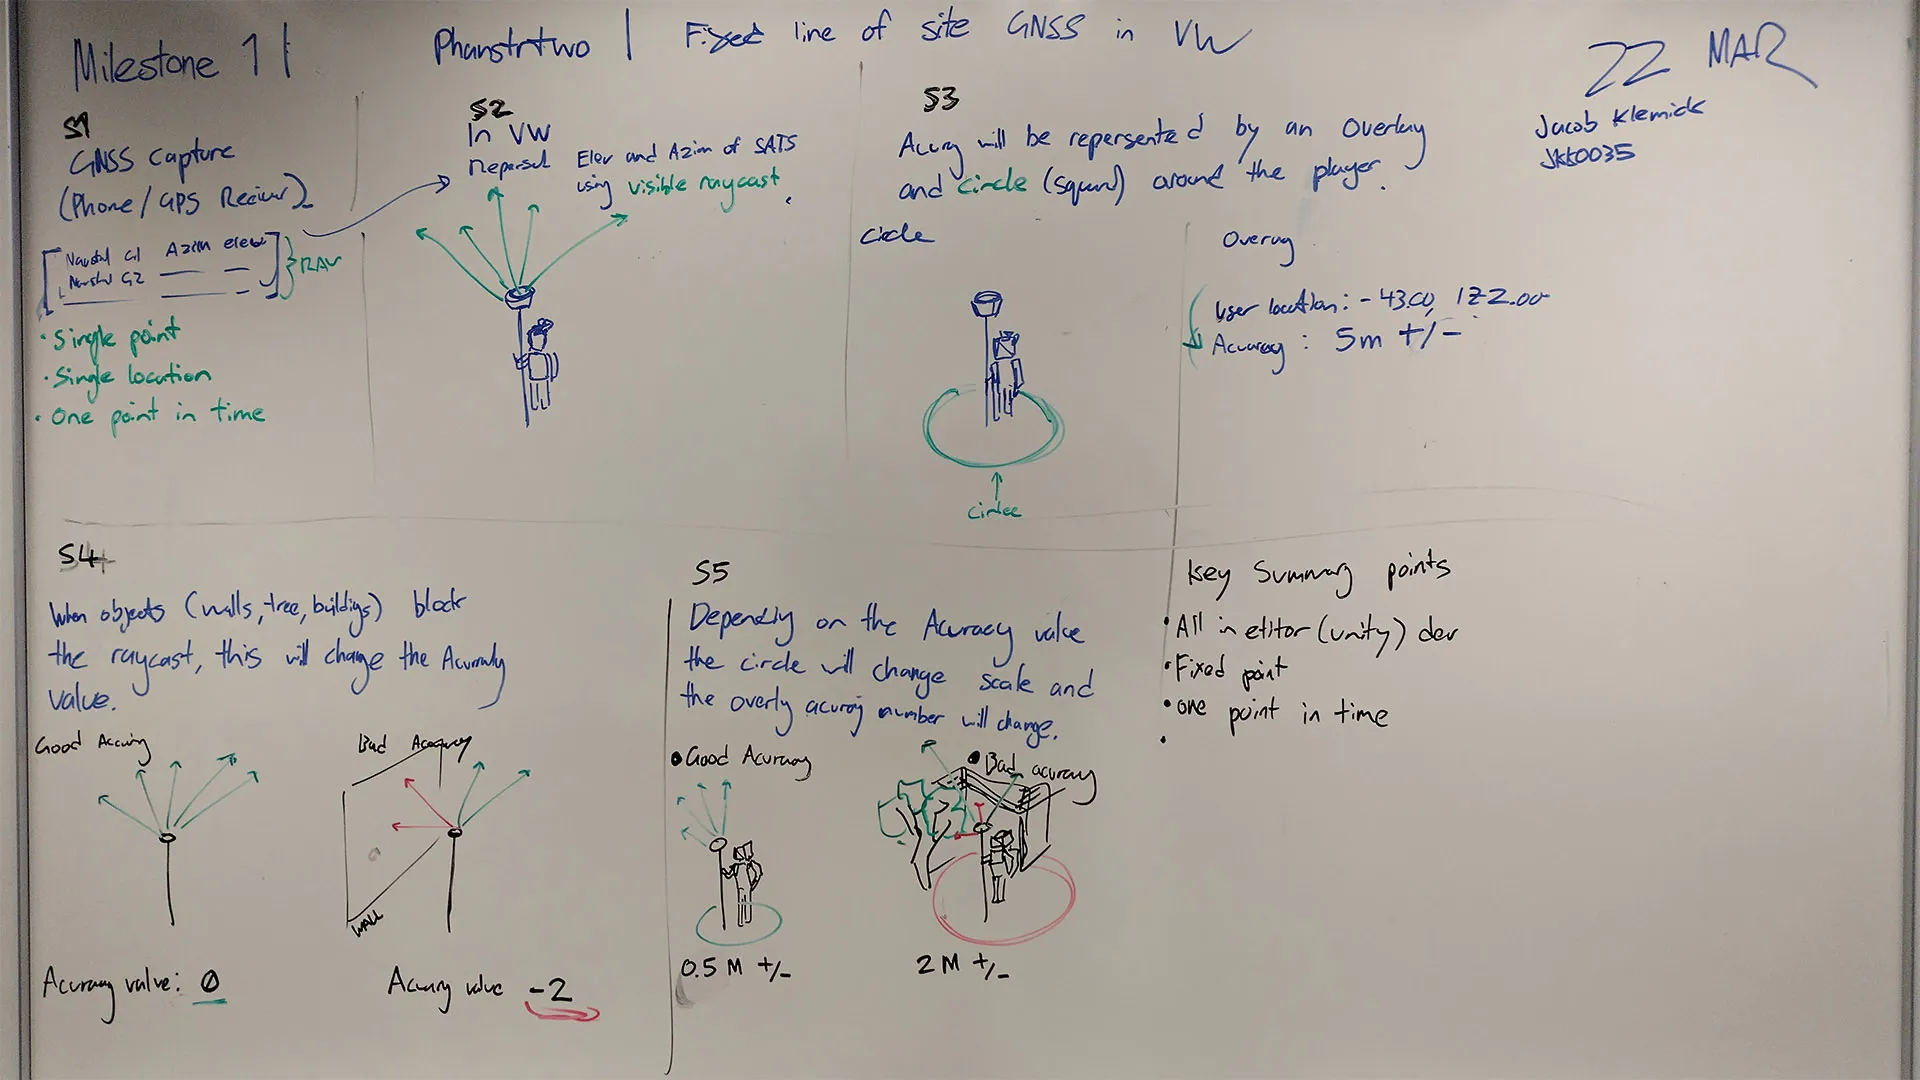 Milestone 1 |
Phanstrtwo | Fixed line of site GNSS in VW
22 MAR
Jacob Klemick
S1
GNSS Capture
(Phone / GPS Reciver)
Azim elev
G2
} RAW
• Single point
• Single location
• One point in time
S2
In VW
Elev and Azim of SATS
using visible raycast.
S3
will be repersented by an Overlay
and circle (squar) around the player.
Circle
User location: -43.00, 172.00
: 5m +/-
Circle
S4
When objects (walls, tree, buildigs) block
the raycast, this will change the
value.
Good
Bad
WALL
value: 0
value -2
S5
on the Acuracy value
the circle will change scale and
the overly number will change.
• Good Acuracy
• Bad acuracy
0.5 M +/-
2 M +/-
Key Summary points
• All in editor (unity) dev
• Fixed point
• one point in time
•